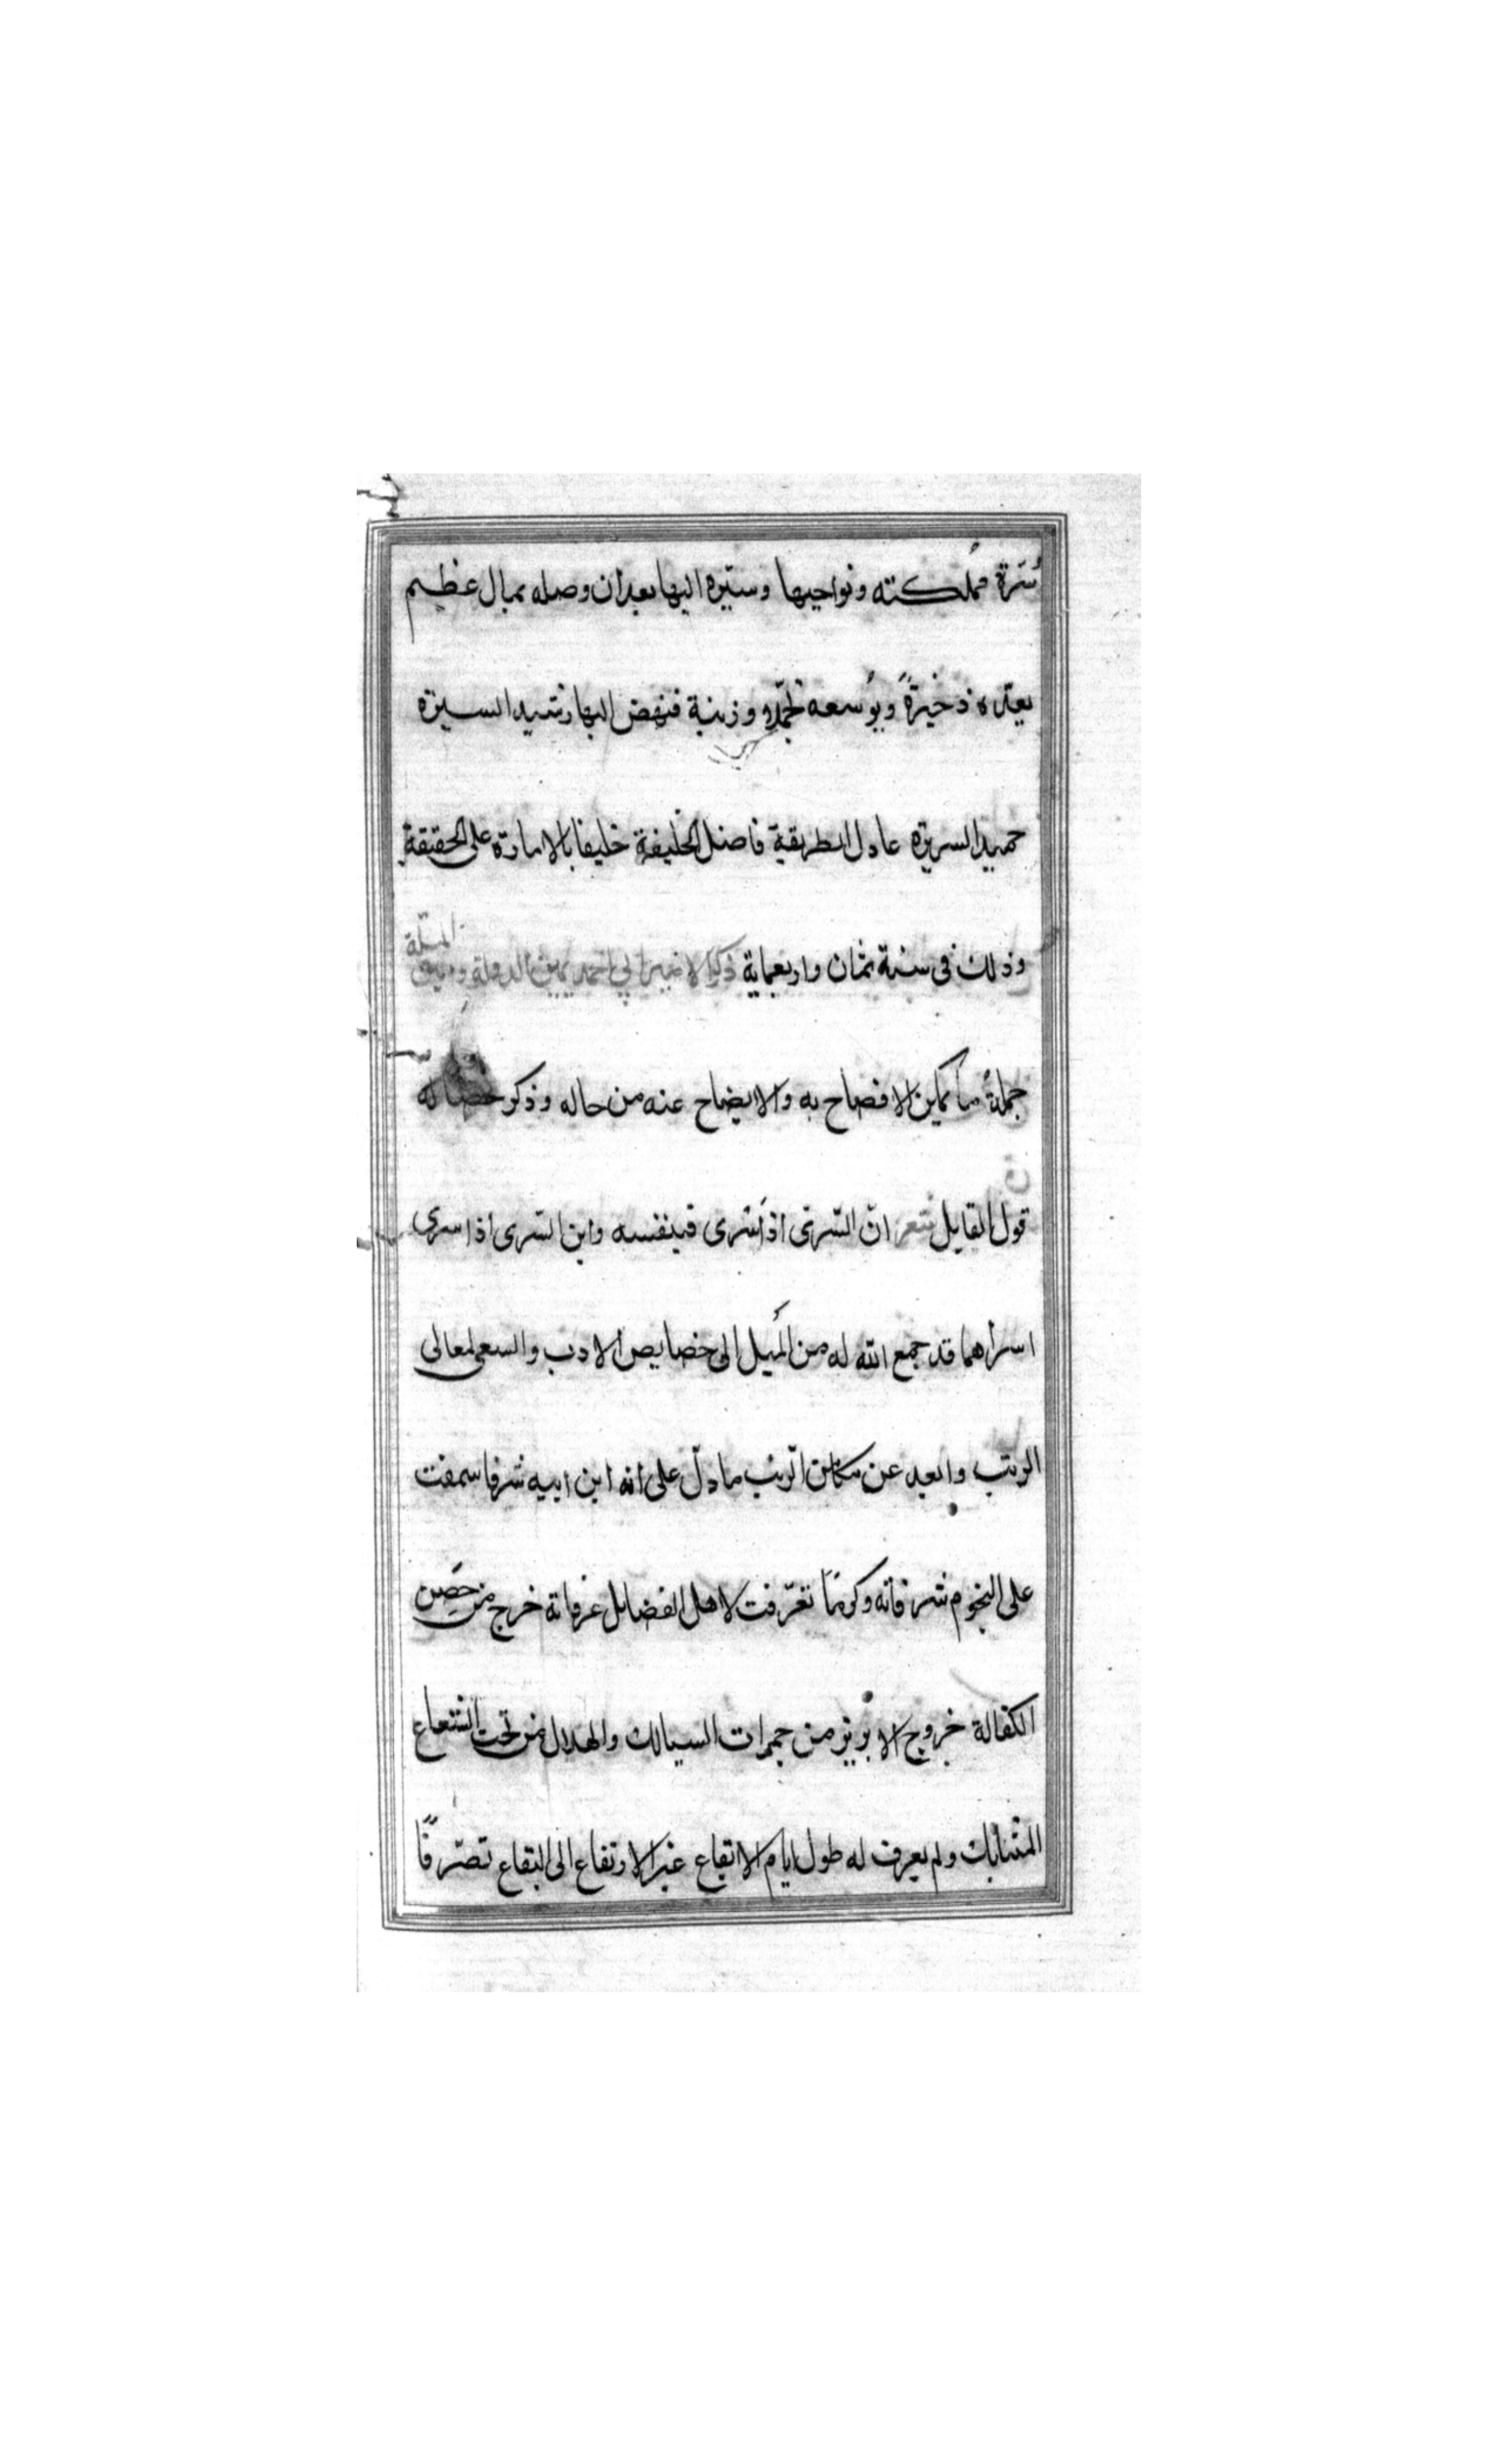 سُرّة مملكته ونواحيها وسيّره اليها بعد ان وصله بمال عظيم
يعتده ذخيرةً ويُوسعه تجمّلا وزينة فنهض اليها رشيد السيرة
حميد السريرة عادل الطريقة فاضل الخليفة خليفا بالامارة على الحقيقة
وذلك فى سنة ثمان واربعماية ذكر الامير ابي احمد يمين الدولة وامين الملّة
جملةُ ما يمكن الافصاح به والايضاح عنه من حاله وذكر خصاله
قول القايل شعر انّ السّرىّ اذا سَرى فبنفسه وابن السّرى اذا سرى
اسراهما قد جمع الله له من المَيل الى خصايص الادب والسعى لمعالى
الرتب والبعد عن مكامن الرّيب ما دلّ على انه ابن ابيه شرفا سمقت
على النجوم شرفاته وكرمًا تعرّفت لاهل الفضايل عرفاته خرج من حِصن
الكفالة خروج الابريز من جمرات السبابك والهلال من تحت الشعاع
المتشابك ولم يعرف له طول ايام الايفاع غير الارتفاع الى اليفاع تصرّفًا